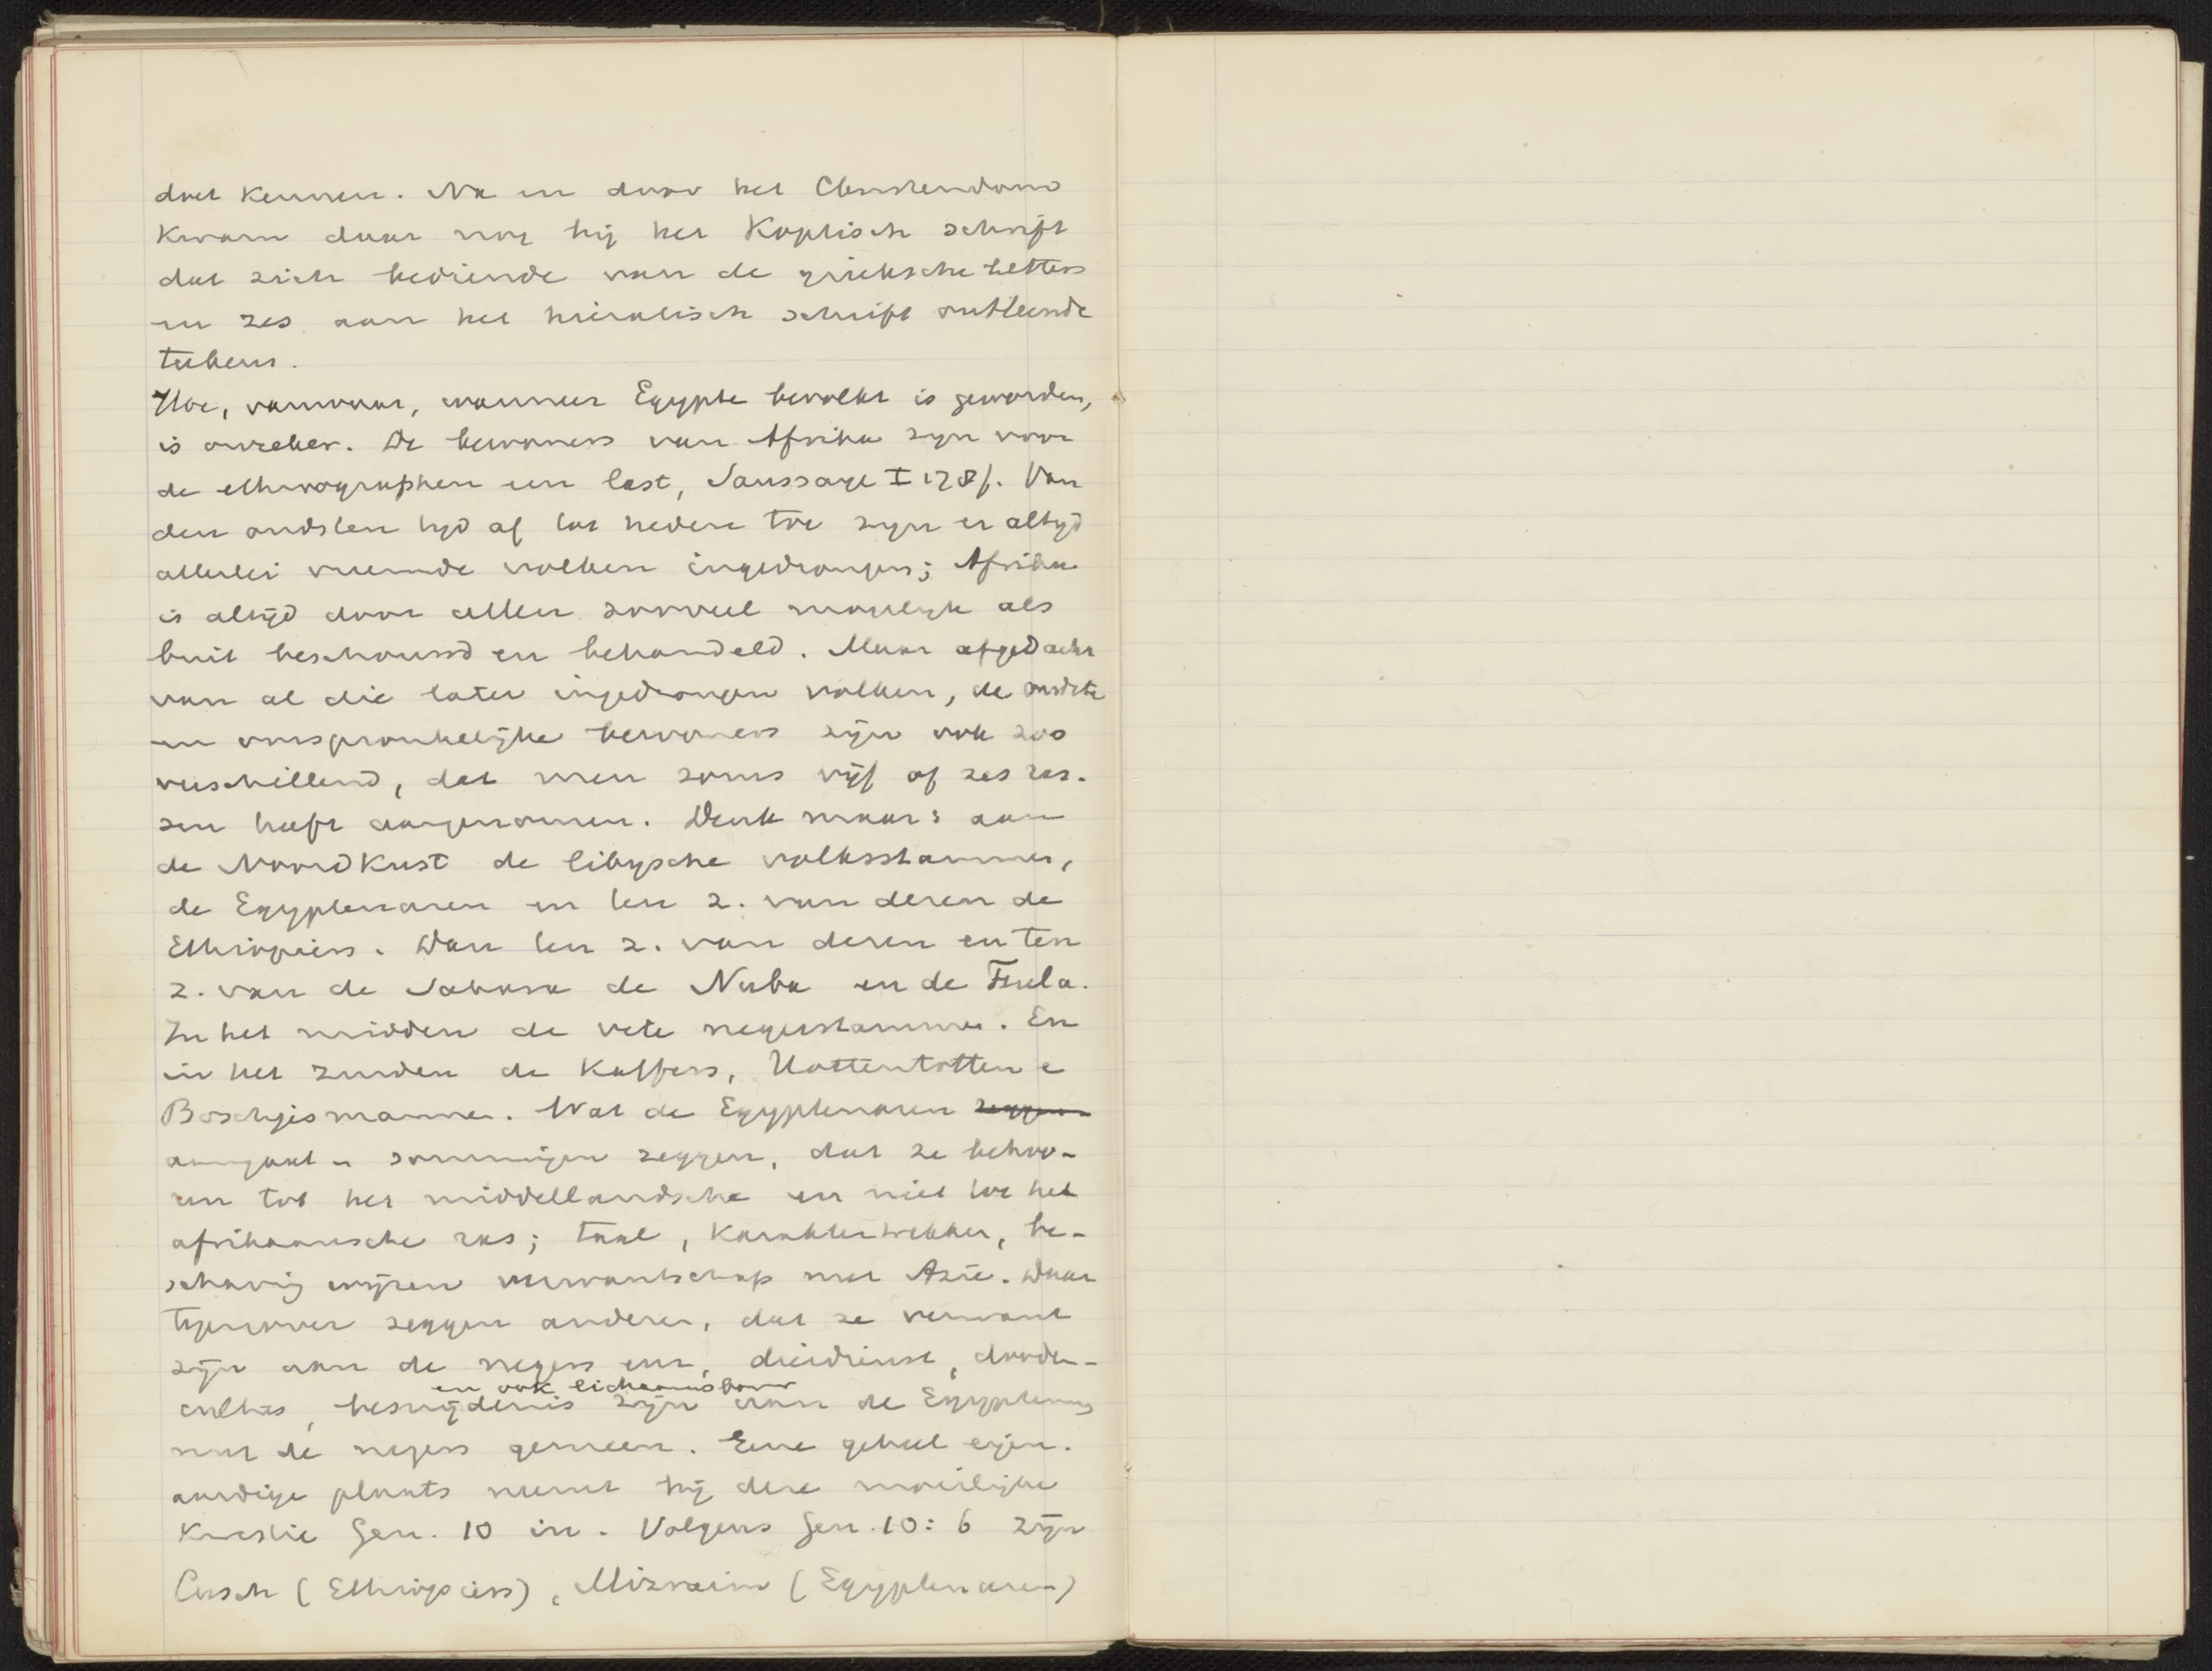 doet kennen. Na en door het Christendom
kwam daar nog bij het Koptisch schrift
dat zich bediende van de grieksche letters
en zes aan het hieratisch schrift ontleende
teekens.
Hoe, vanwaar, wanneer Egypte bevolkt is geworden,
is onzeker. De bewoners van Afrika zyn voor
de ethnographen een last, Saussaye I 178f. Van
den oudsten tyd af tot heden toe zyn er altyd
allerlei vreemde volken ingedrongen; Afrika
is altijd door allen zooveel mogelyk als
buit beschouwd en behandeld. Maar afgedacht
van al die later ingedrongen volken, de oudste
en oorspronkelijke bewoners zijn ook zoo
verschillend, dat men soms vijf of zes ras-
sen heeft aangenomen. Denk maar: aan
de Noordkust de libysche volksstammen,
de Egyptenaren en ten z. van dezen de
Ethiopiers. Dan ten z. van dezen en ten
z. van de Sahara de Nuba en de Fula.
In het midden de vele negerstammen. En
in het zuiden de Kaffers, Hottentotten e
Boschjesmannen. Wat de Egyptenaren zeggen
aangaat - sommigen zeggen, dat ze behoo-
ren tot het middellandsche en niet tot het
afrikaansche ras; taal, karaktertrekken, be-
schaving wijzen verwantschap met Azië. Daar
tegenover zeggen anderen, dat ze verwant
zijn aan de negers enz, dierdienst, dooden-
cultus, besnijdenis en ook lichaamsbouw zijn aan de Egyptenaren
met de negers gemeen. Eene geheel eigen-
aardige plaats neemt bij deze moeilijke
kwestie Gen. 10 in. Volgens Gen. 10: 6 zijn
Cusch (Ethiopiërs), Mizraim (Egyptenaren)